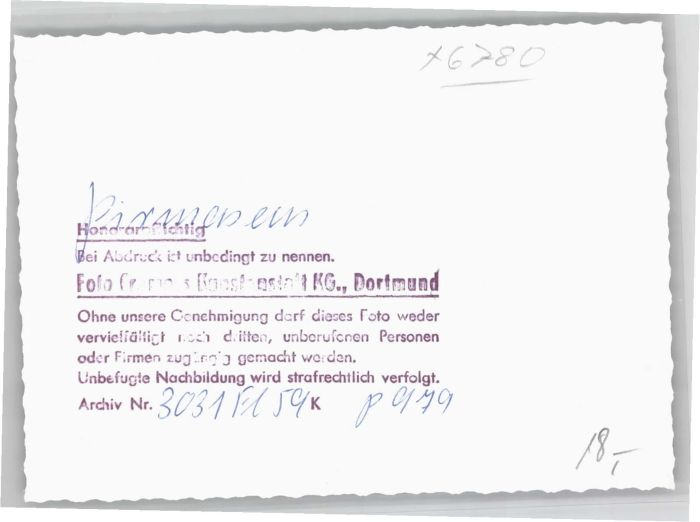 x6780
Pirmasens
Honorarpflichtig
Bei Abdruck ist unbedingt zu nennen.
Foto Cramers Kunstanstalt KG., Dortmund
Ohne unsere Genehmigung darf dieses Foto weder
vervielfältigt noch dritten, unberufenen Personen
oder Firmen zugängig gemacht werden.
Unbefugte Nachbildung wird strafrechtlich verfolgt.
Archiv Nr. 3031 59 K p 979
18,-